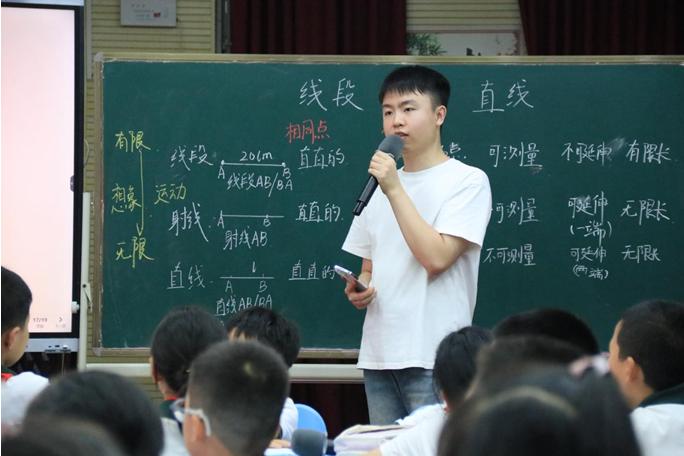 线段 直线
相同点
有限 线段 A 20cm B 直直的 点 可测量 不可延伸 有限长
线段AB/BA
想象 运动
射线 A B 直直的 可测量 可延伸 无限长
射线AB (一端)
无限
直线 l 直直的 不可测量 可延伸 无限长
A B (两端)
直线AB/BA
17/19